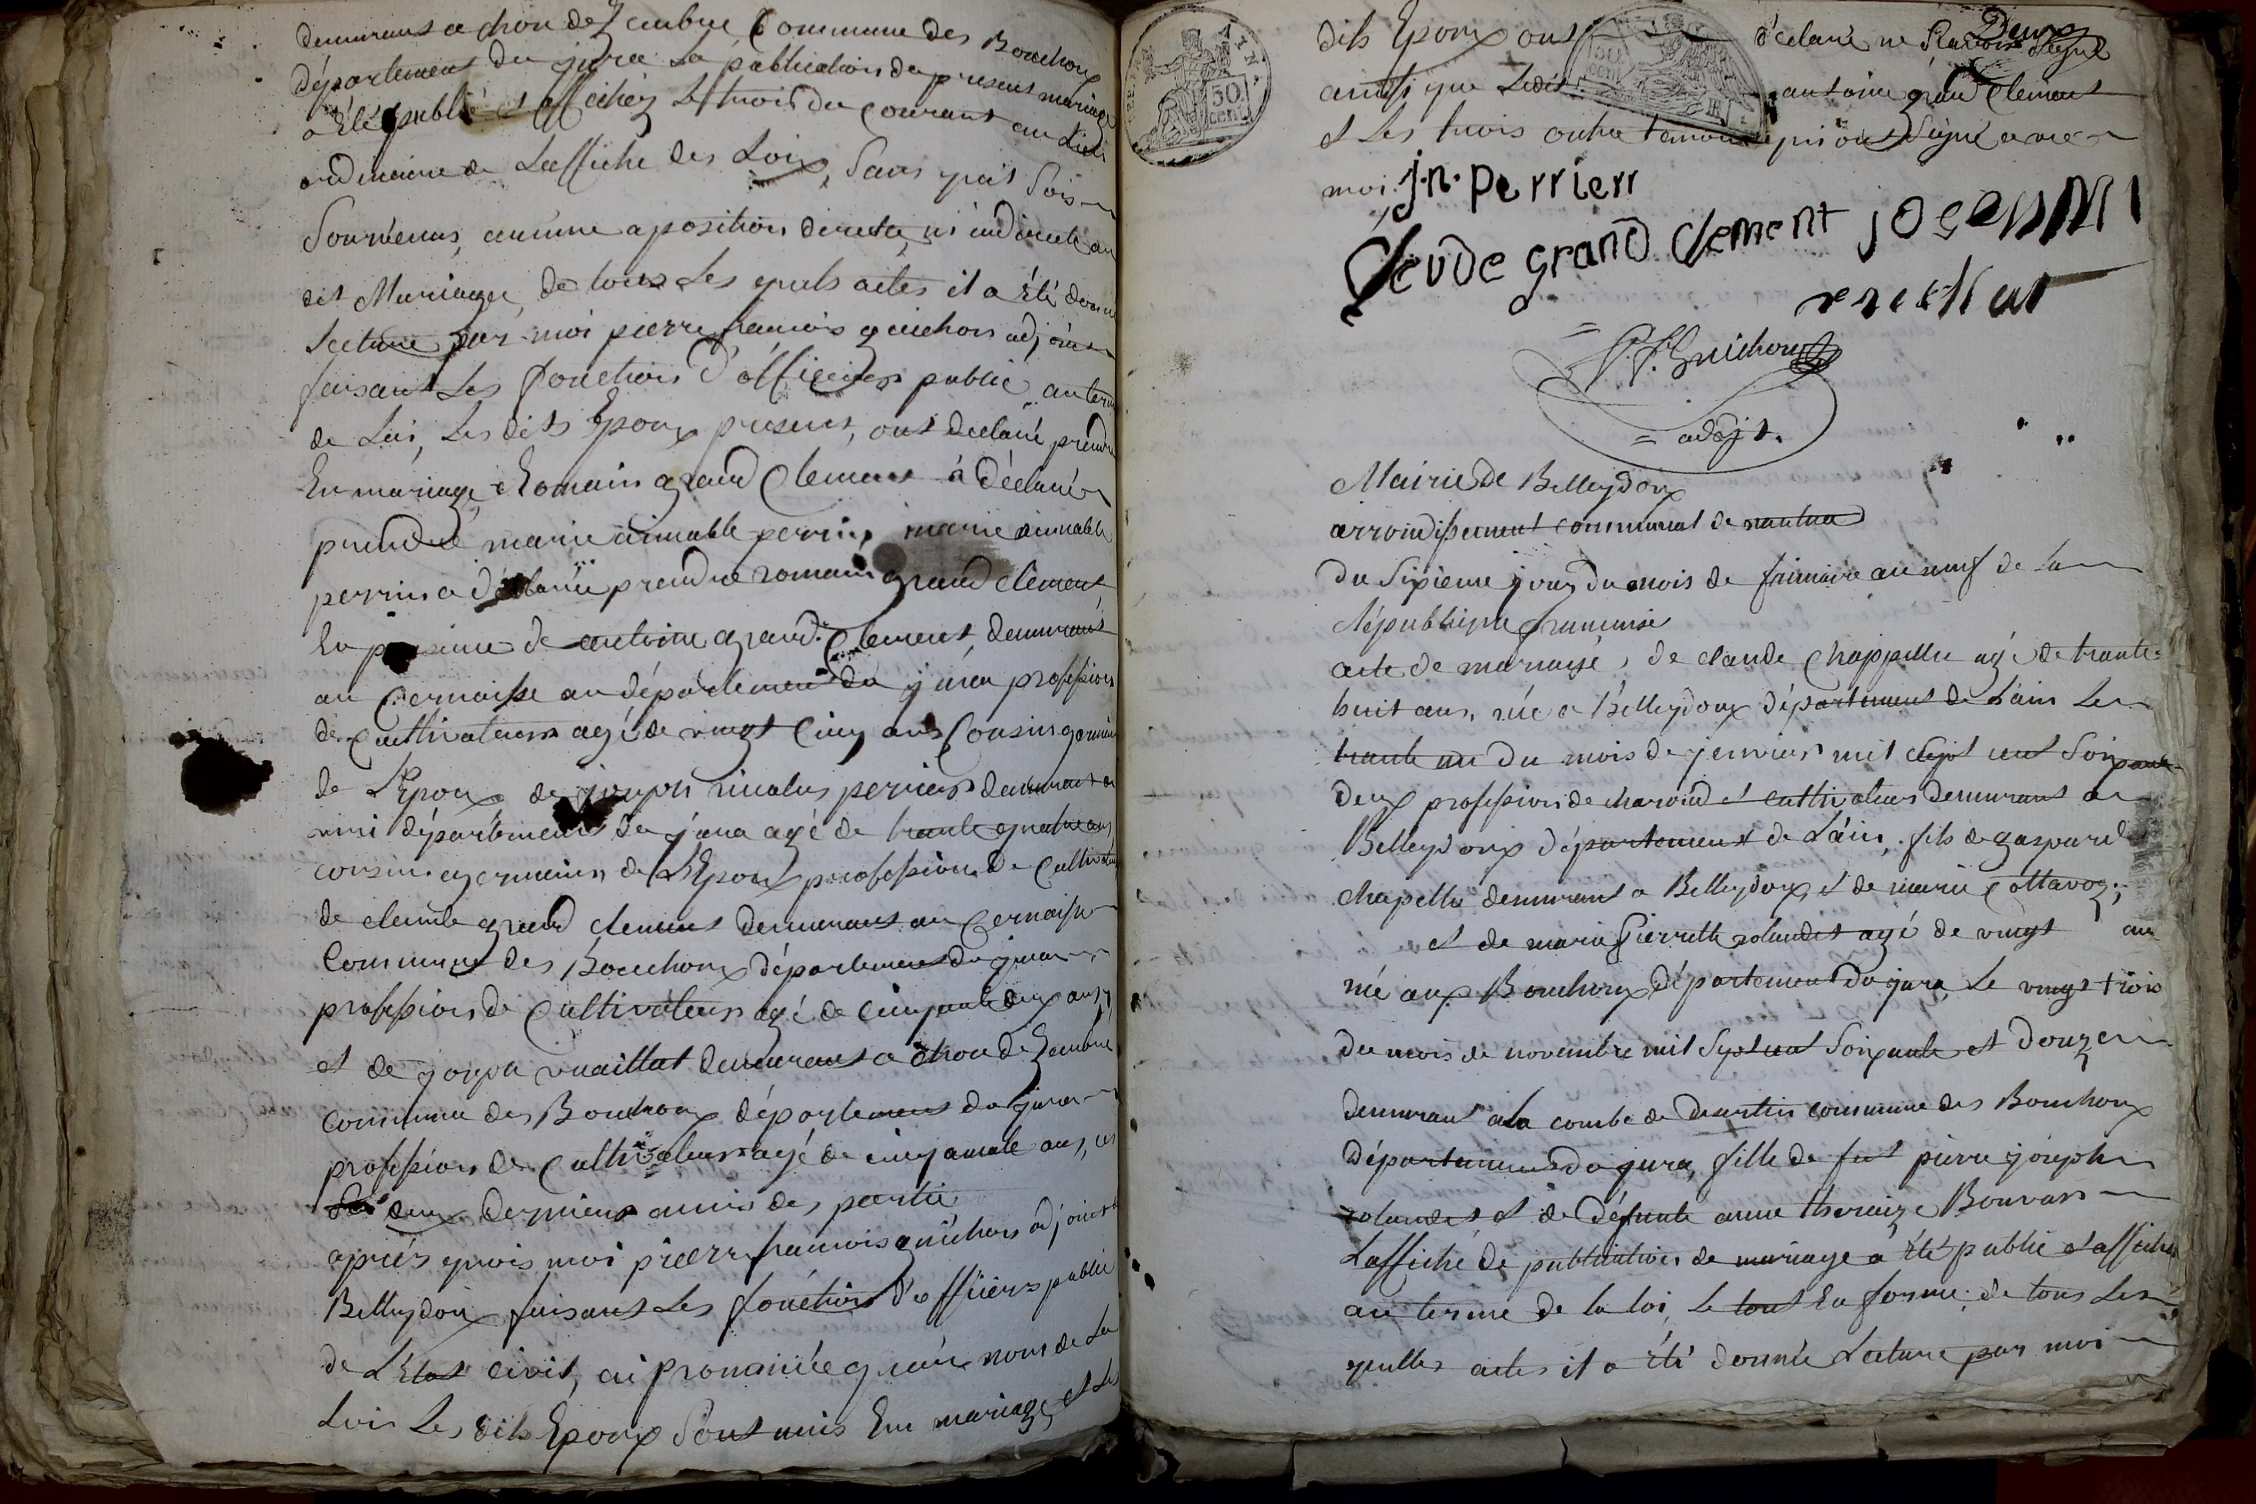 demeurant a chon de Zembrie Commune des Bouchoux
département du jura La publication du present mariage
a été publié et affichéz Le trois du Courant au Lieu
ordinaire de Laffiche des Loix, Sans quil Sois
Sourvenus, aucune aposition directe ni indirecte au
dit Mariage, de tous Les quels actes il a été donné
Lecture par moi pierre francois guichon adjoint
faisant Les fonction d'officier public au terme
de Loi, Les dits Epoux present, ont declaré prendre
En mariage, Romain grand Clement à déclaré
prendre marie aimable perrin, marie aimable
perrin a déclarée prendre romain grand clement
En presence de antoine grand Clement, demeurant
au Cernaisse au département du jura profession
de Cultivateur agé de vingt Cinq ans Cousin germain
de L'Epoux de joseph nicolas perrier demeurant a
viri département du jura agé de trante quatre ans
cousin germain de L'Epoux profession de Cultivateur
de claude grand clement demeurant au Cernaisse
Commune des Bouchoux département du jura
profession de Cultivateur agé de cinquante deux ans,
et de joseph vuaillat demeurant a chon de Zembrie
Commune des Bouchoux département du jura
profession de Cultivateur agé de cinquante ans, ces
deux derniers amis des partie
après quois moi pierre francois guichon adjoint
Belleydoux faisant Les fonction d'officiers public
de L'Etat civil, ai prononcée qu'au nom de La
Lois Les dits Epoux Sont unis En mariage et Les
Deux
dits Epoux ont déclaré ne Savoir Signé
ainsi que Ledit antoine grand Clement
et Les trois outre temoins pris ont Signé avec
moi
j.n. perrier
Cleude grand Clement joseph
P. F. Guichon
adojt.
Mairie de Belleydoux
arrondissement communal de nantua
du Sixieme jour du mois de frimaire an neuf de La
République francaise
acte de mariage, de claude Chappellu agé de trante
huit ans, née a Belleydoux département de L'ain Le
trante un du mois de jenvier mil Sept cent Soixante
deux profession de charond et cultivateur demeurant a
Belleydoux département de L'ain, fils de gaspard
chapellu demeurant a Belleydoux et de marie Cottavoz;
et de marie Pierrette rolandet agé de vingt ans
née aux Bouchoux département du jura Le vingt trois
du mois de novembre mil Sept cent Soixante et douze
demeurant ala combe de Martin commune des Bouchoux
département du jura, fille de feut pierre joseph
rolandet et de défunte anne theraize Bouvard
Laffiche de publication de mariage a été public et affichez
au terme de la loi, Le tout En forme: de tous Les
quelles actes il a été donnée Lecture par moi
50 cent